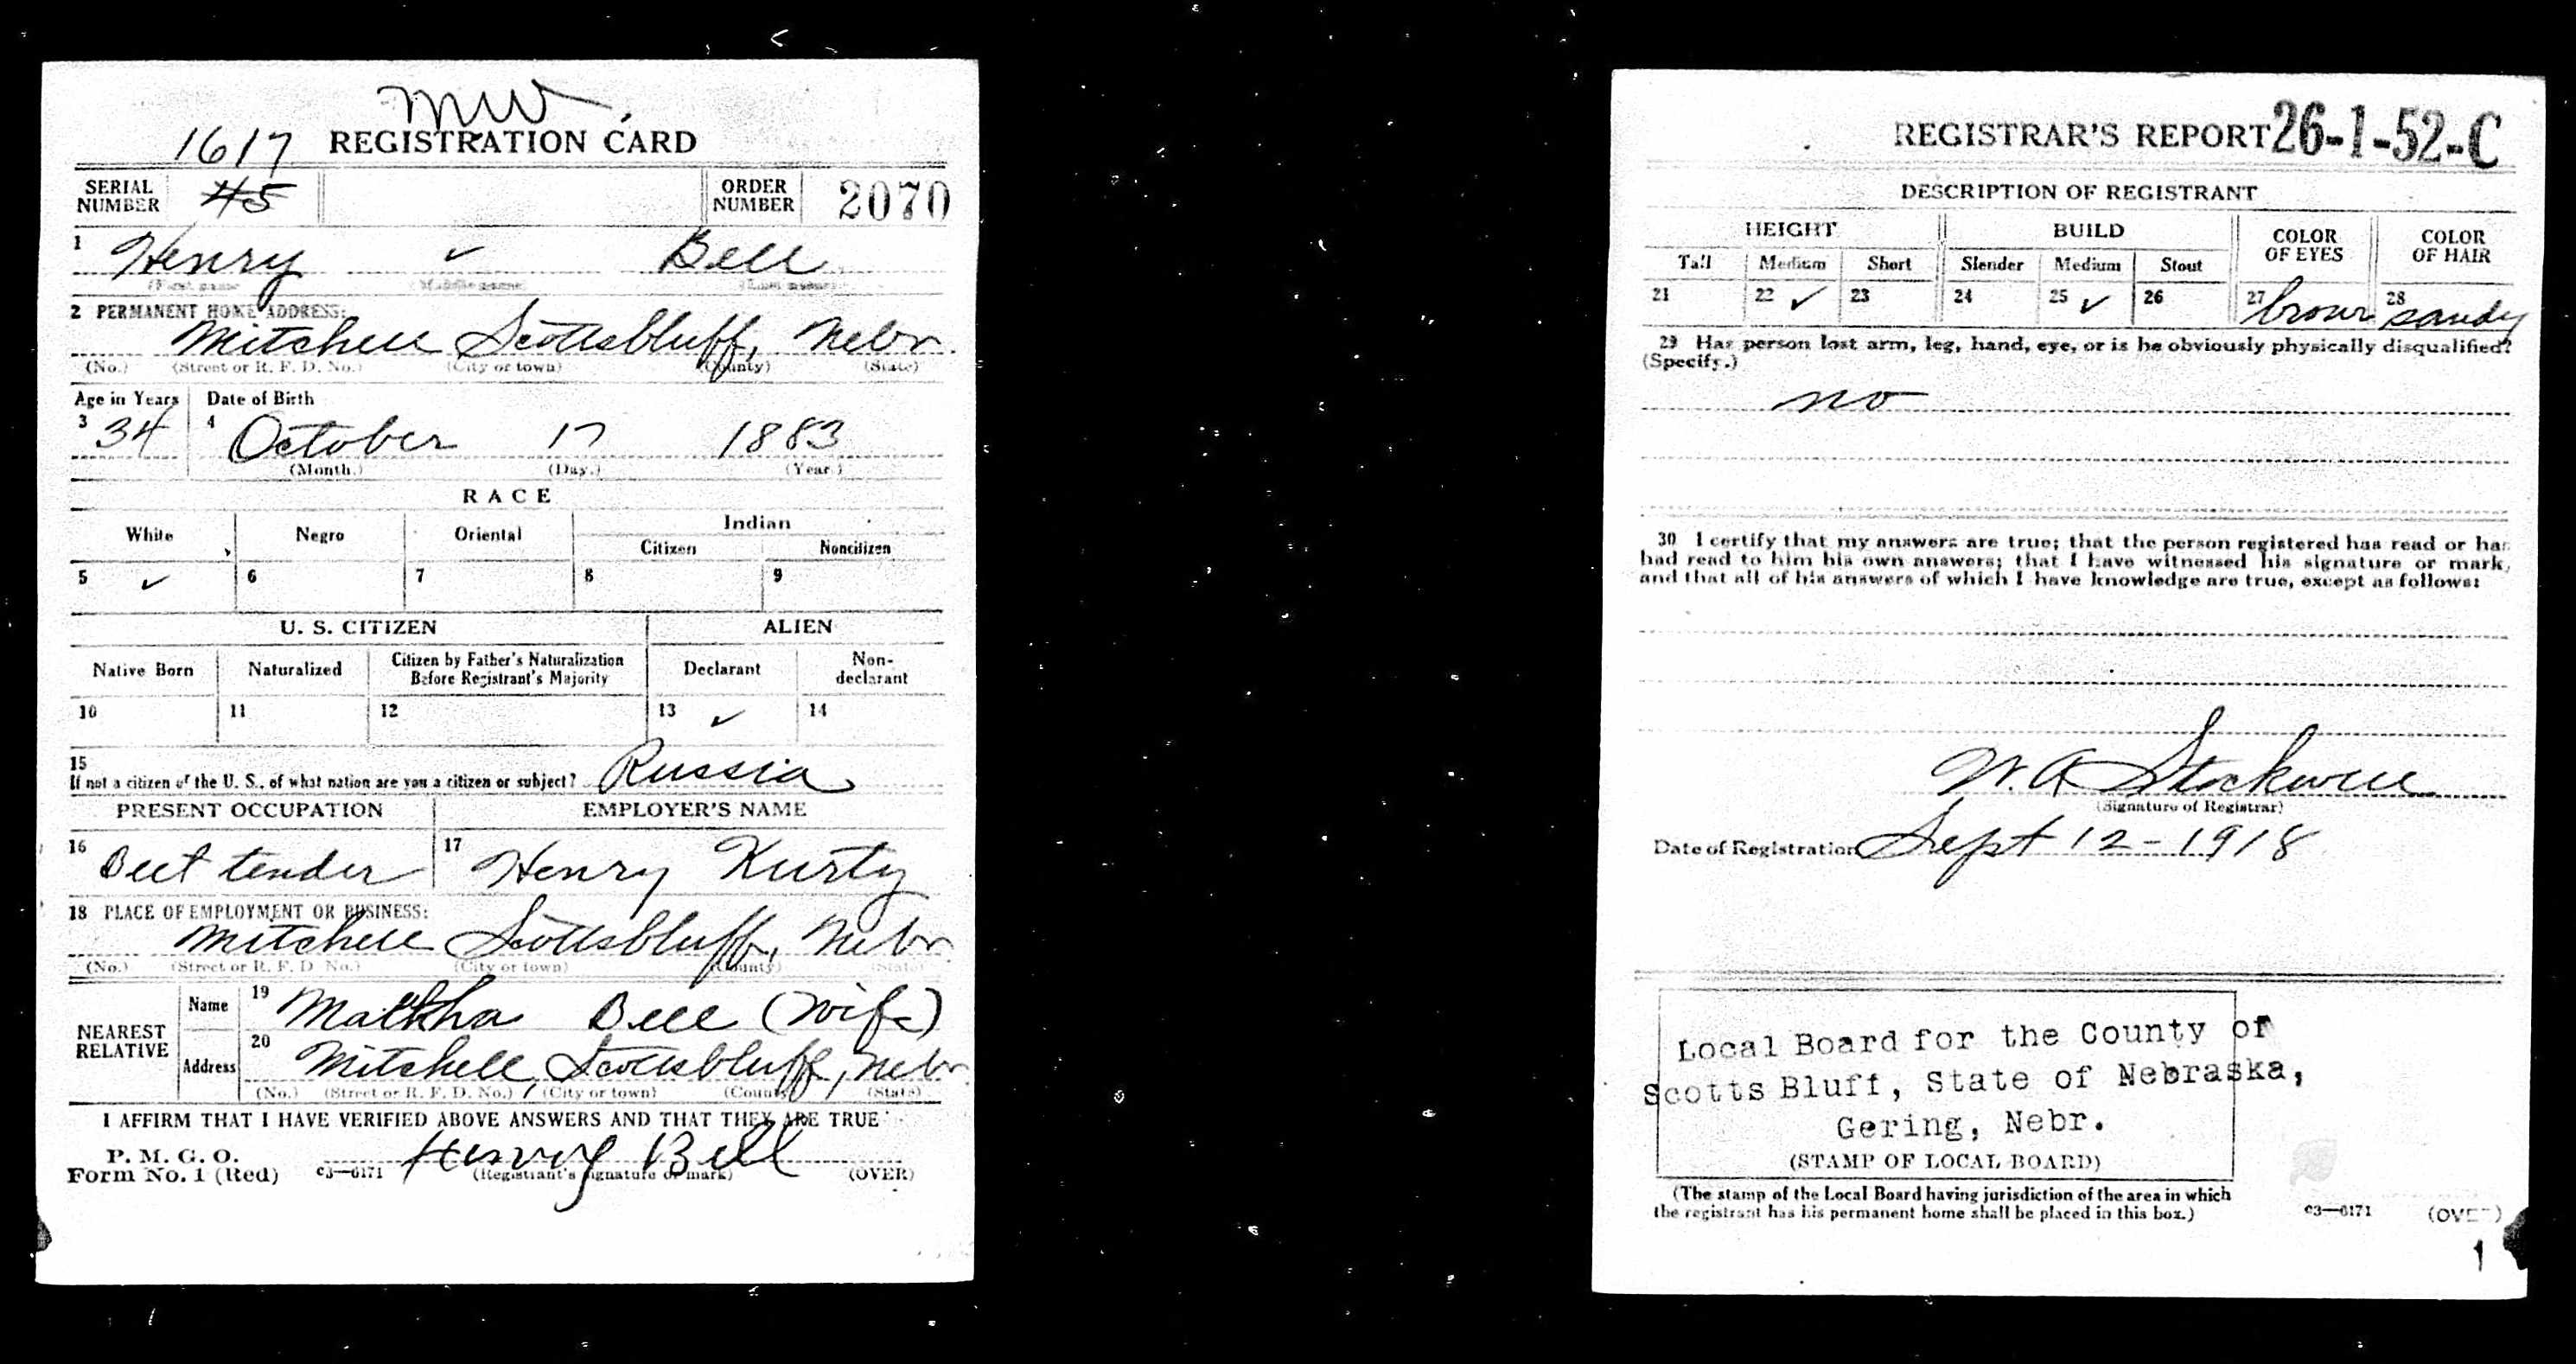 MW
1617 REGISTRATION CARD
SERIAL NUMBER 45 ORDER NUMBER 2070
1 Henry ✓ Bell
(First name) (Middle name) (Last name)
2 PERMANENT HOME ADDRESS:
Mitchell Scottsbluff, Nebr.
(No.) (Street or R. F. D. No.) (City or town) (County) (State)
Age in Years Date of Birth
3 34 4 October 17 1883
(Month.) (Day.) (Year.)
RACE
White Negro Oriental Indian
Citizen Noncitizen
5 ✓ 6 7 8 9
U. S. CITIZEN ALIEN
Native Born Naturalized Citizen by Father's Naturalization Before Registrant's Majority Declarant Non-declarant
10 11 12 13 ✓ 14
15
If not a citizen of the U. S., of what nation are you a citizen or subject? Russia
PRESENT OCCUPATION EMPLOYER'S NAME
16 Beet tender 17 Henry Kurtz
18 PLACE OF EMPLOYMENT OR BUSINESS:
Mitchell Scottsbluff, Nebr
(No.) (Street or R. F. D. No.) (City or town) (County) (State)
NEAREST RELATIVE Name 19 Martha Bell (wife)
Address 20 Mitchell, Scottsbluff, Nebr
(No.) (Street or R. F. D. No.) (City or town) (County) (State)
I AFFIRM THAT I HAVE VERIFIED ABOVE ANSWERS AND THAT THEY ARE TRUE
P. M. G. O.
Form No. 1 (Red) c3—6171 Henry Bell (Registrant's signature or mark) (OVER)
REGISTRAR'S REPORT 26-1-52-C
DESCRIPTION OF REGISTRANT
HEIGHT BUILD COLOR OF EYES COLOR OF HAIR
Tall Medium Short Slender Medium Stout
21 22 ✓ 23 24 25 ✓ 26 27 brown 28 sandy
29 Has person lost arm, leg, hand, eye, or is he obviously physically disqualified?
(Specify.)
no
30 I certify that my answers are true; that the person registered has read or has
had read to him his own answers; that I have witnessed his signature or mark,
and that all of his answers of which I have knowledge are true, except as follows:
W. A Stockwell
(Signature of Registrar)
Date of Registration Sept 12-1918
Local Board for the County of
Scotts Bluff, State of Nebraska,
Gering, Nebr.
(STAMP OF LOCAL BOARD)
(The stamp of the Local Board having jurisdiction of the area in which
the registrant has his permanent home shall be placed in this box.)
c3—6171 (OVER)
1